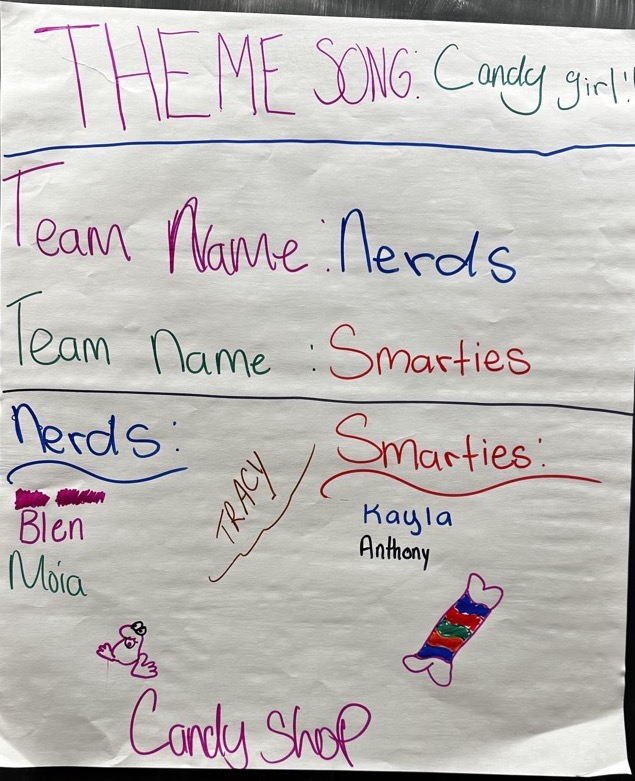 THEME SONG: Candy girl!
Team Name: Nerds
Team Name: Smarties
Nerds:
Blen
Moia
TRACY
Smarties:
Kayla
Anthony
Candy Shop